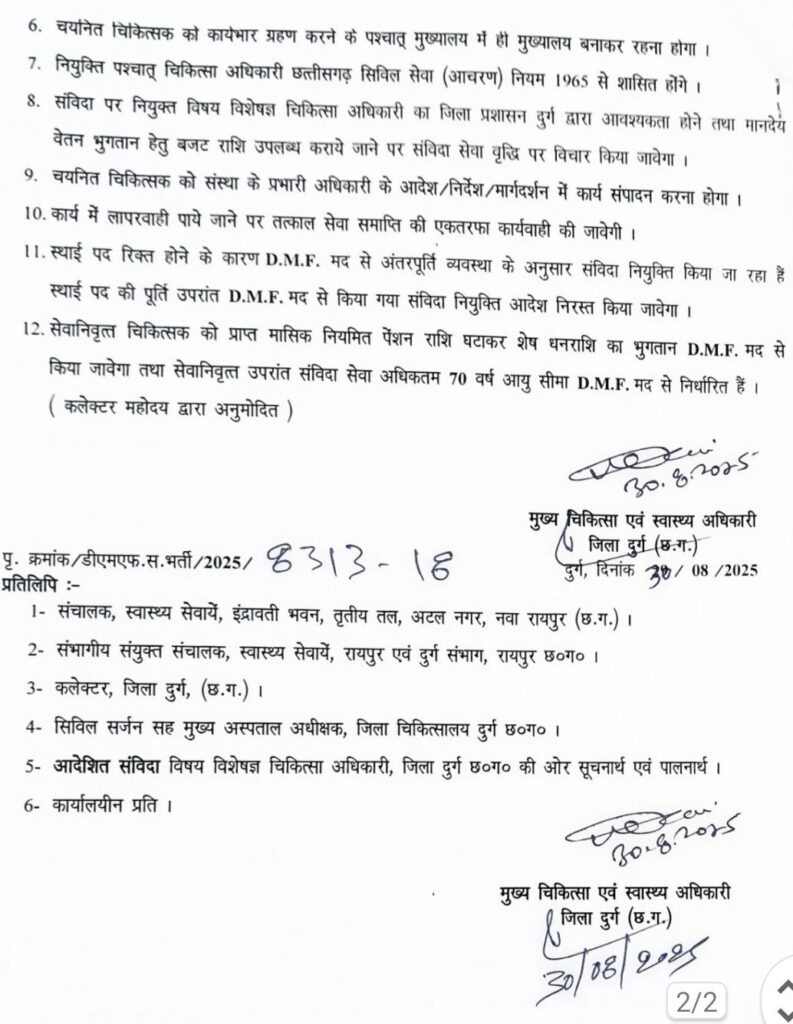 6. चयनित चिकित्सक को कार्यभार ग्रहण करने के पश्चात् मुख्यालय में ही मुख्यालय बनाकर रहना होगा ।
7. नियुक्ति पश्चात् चिकित्सा अधिकारी छत्तीसगढ़ सिविल सेवा (आचरण) नियम 1965 से शासित होंगे ।
8. संविदा पर नियुक्त विषय विशेषज्ञ चिकित्सा अधिकारी का जिला प्रशासन दुर्ग द्वारा आवश्यकता होने तथा मानदेय
वेतन भुगतान हेतु बजट राशि उपलब्ध कराये जाने पर संविदा सेवा वृद्धि पर विचार किया जावेगा ।
9. चयनित चिकित्सक को संस्था के प्रभारी अधिकारी के आदेश/निर्देश/मार्गदर्शन में कार्य संपादन करना होगा ।
10. कार्य में लापरवाही पाये जाने पर तत्काल सेवा समाप्ति की एकतरफा कार्यवाही की जावेगी ।
11. स्थाई पद रिक्त होने के कारण D.M.F. मद से अंतरपूर्ति व्यवस्था के अनुसार संविदा नियुक्ति किया जा रहा हैं
स्थाई पद की पूर्ति उपरांत D.M.F. मद से किया गया संविदा नियुक्ति आदेश निरस्त किया जावेगा ।
12. सेवानिवृत्त चिकित्सक को प्राप्त मासिक नियमित पेंशन राशि घटाकर शेष धनराशि का भुगतान D.M.F. मद से
किया जावेगा तथा सेवानिवृत्त उपरांत संविदा सेवा अधिकतम 70 वर्ष आयु सीमा D.M.F. मद से निर्धारित हैं ।
( कलेक्टर महोदय द्वारा अनुमोदित )
30.8.2025
मुख्य चिकित्सा एवं स्वास्थ्य अधिकारी
जिला दुर्ग (छ.ग.)
पृ. क्रमांक/डीएमएफ.स.भर्ती/2025/ 8313-18
दुर्ग, दिनांक 30/ 08 /2025
प्रतिलिपि :-
1- संचालक, स्वास्थ्य सेवायें, इंद्रावती भवन, तृतीय तल, अटल नगर, नवा रायपुर (छ.ग.) ।
2- संभागीय संयुक्त संचालक, स्वास्थ्य सेवायें, रायपुर एवं दुर्ग संभाग, रायपुर छ०ग० ।
3- कलेक्टर, जिला दुर्ग, (छ.ग.) ।
4- सिविल सर्जन सह मुख्य अस्पताल अधीक्षक, जिला चिकित्सालय दुर्ग छ०ग० ।
5- आदेशित संविदा विषय विशेषज्ञ चिकित्सा अधिकारी, जिला दुर्ग छ०ग० की ओर सूचनार्थ एवं पालनार्थ ।
6- कार्यालयीन प्रति ।
30.8.2025
मुख्य चिकित्सा एवं स्वास्थ्य अधिकारी
जिला दुर्ग (छ.ग.)
30/08/2025
2/2